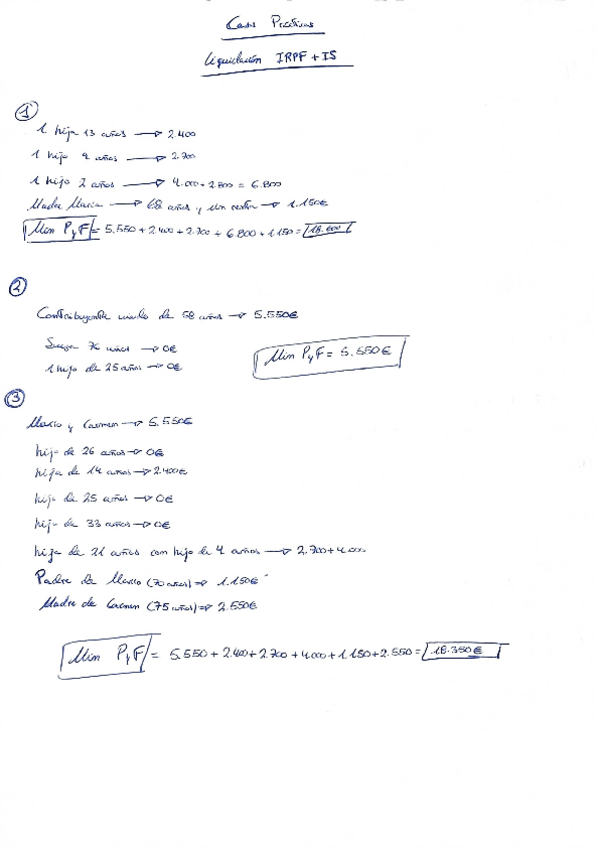 Casos Prácticos
Liquidación IRPF + IS
1
1 hija 13 años → 2.400
1 hijo 9 años → 2.700
1 hijo 2 años → 4.000 + 2.800 = 6.800
Madre María → 68 años y sin rentas → 1.150€
Min PyF = 5.550 + 2.400 + 2.700 + 6.800 + 1.150 = 18.600
2
Contribuyente viudo de 58 años → 5.550€
Suegra 76 años → 0€
1 hijo de 25 años → 0€
Min PyF = 5.550€
3
Mario y Carmen → 5.550€
hijo de 26 años → 0€
hija de 14 años → 2.400€
hijo de 25 años → 0€
hijo de 33 años → 0€
hija de 21 años con hijo de 4 años → 2.700 + 4.000
Padre de Mario (70 años) → 1.150€
Madre de Carmen (75 años) → 2.550€
Min PyF = 5.550 + 2.400 + 2.700 + 4.000 + 1.150 + 2.550 = 18.350€